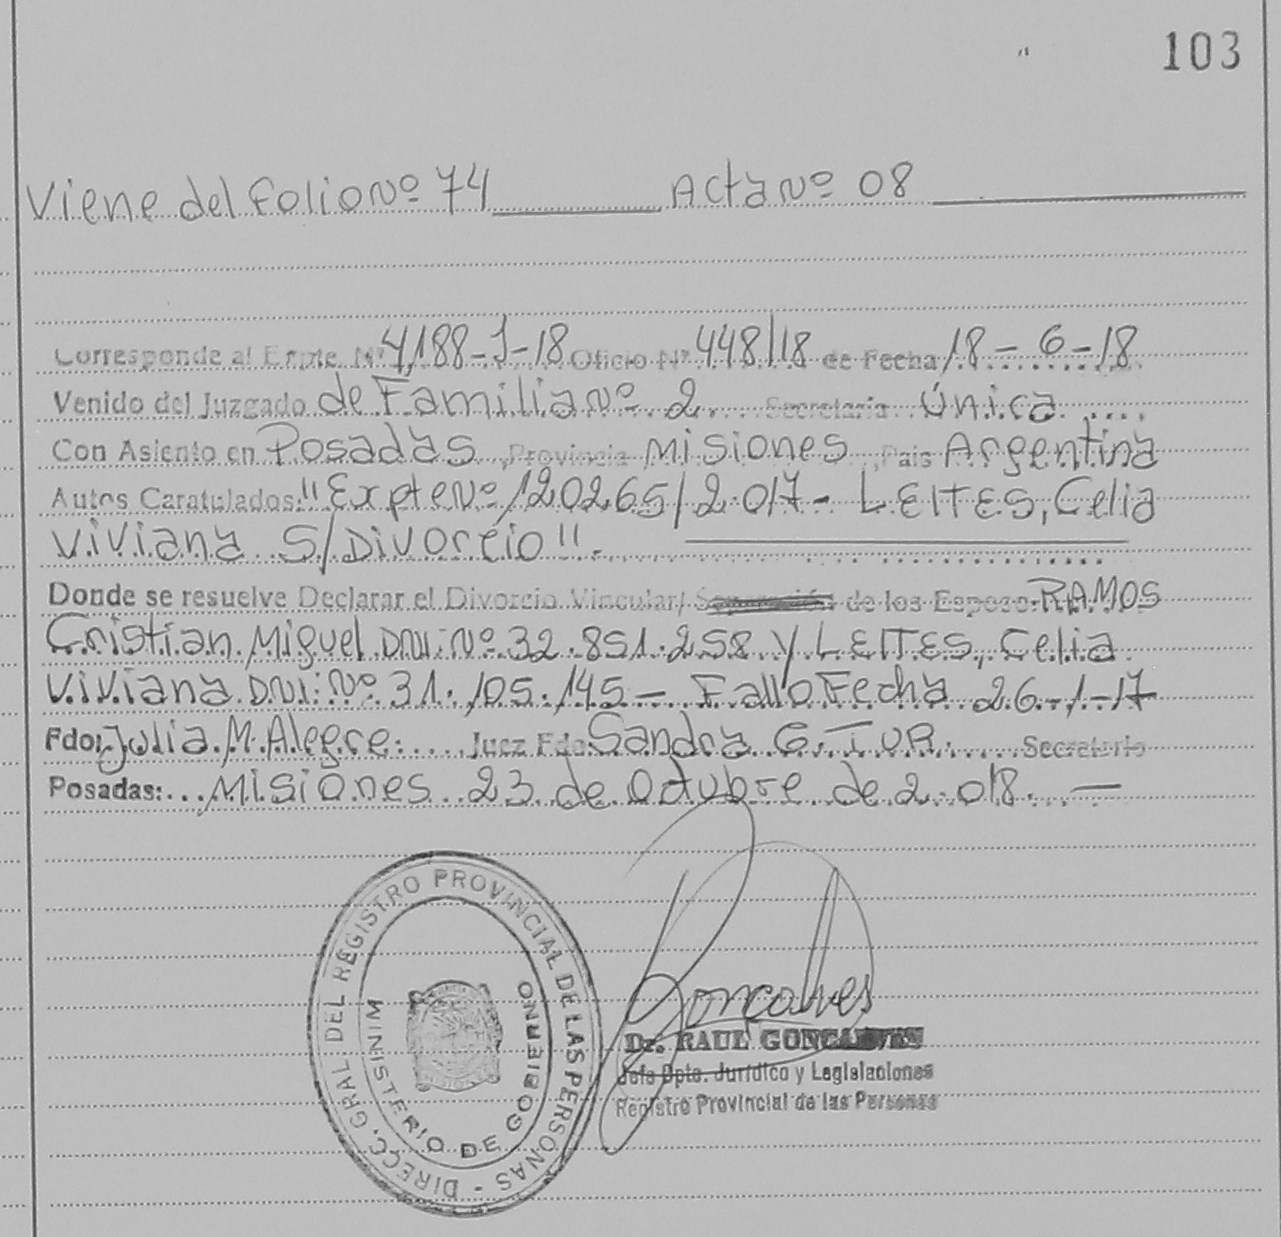 103
Viene del Folio Nº 74 Acta Nº 08
Corresponde al Expte. Nº 4188-J-18 Oficio Nº 448/18 de Fecha 18-6-18
Venido del Juzgado de Familia Nº 2 Secretaría Única
Con Asiento en Posadas, Provincia Misiones, País Argentina
Autos Caratulados: "Expte Nº 120265/2.017- LEITES, Celia
Viviana S/Divorcio".
Donde se resuelve Declarar el Divorcio Vincular/ Separación de los Esposo RAMOS
Cristian Miguel DNI: Nº 32.851.258 y LEITES, Celia
Viviana DNI: Nº 31.105.145 - Fallo Fecha 26-1-17
Fdo: Julia M. Alegre. Juez Fdo: Sandra G. TUR. Secretario
Posadas: Misiones 23 de Octubre de 2.018. -
DIRECC. GRAL DEL REGISTRO PROVINCIAL DE LAS PERSONAS -
MINISTERIO DE GOBIERNO
Goncalves
Dr. RAUL GONCALVES
Jefe Dpto. Jurídico y Legislaciones
Registro Provincial de las Personas